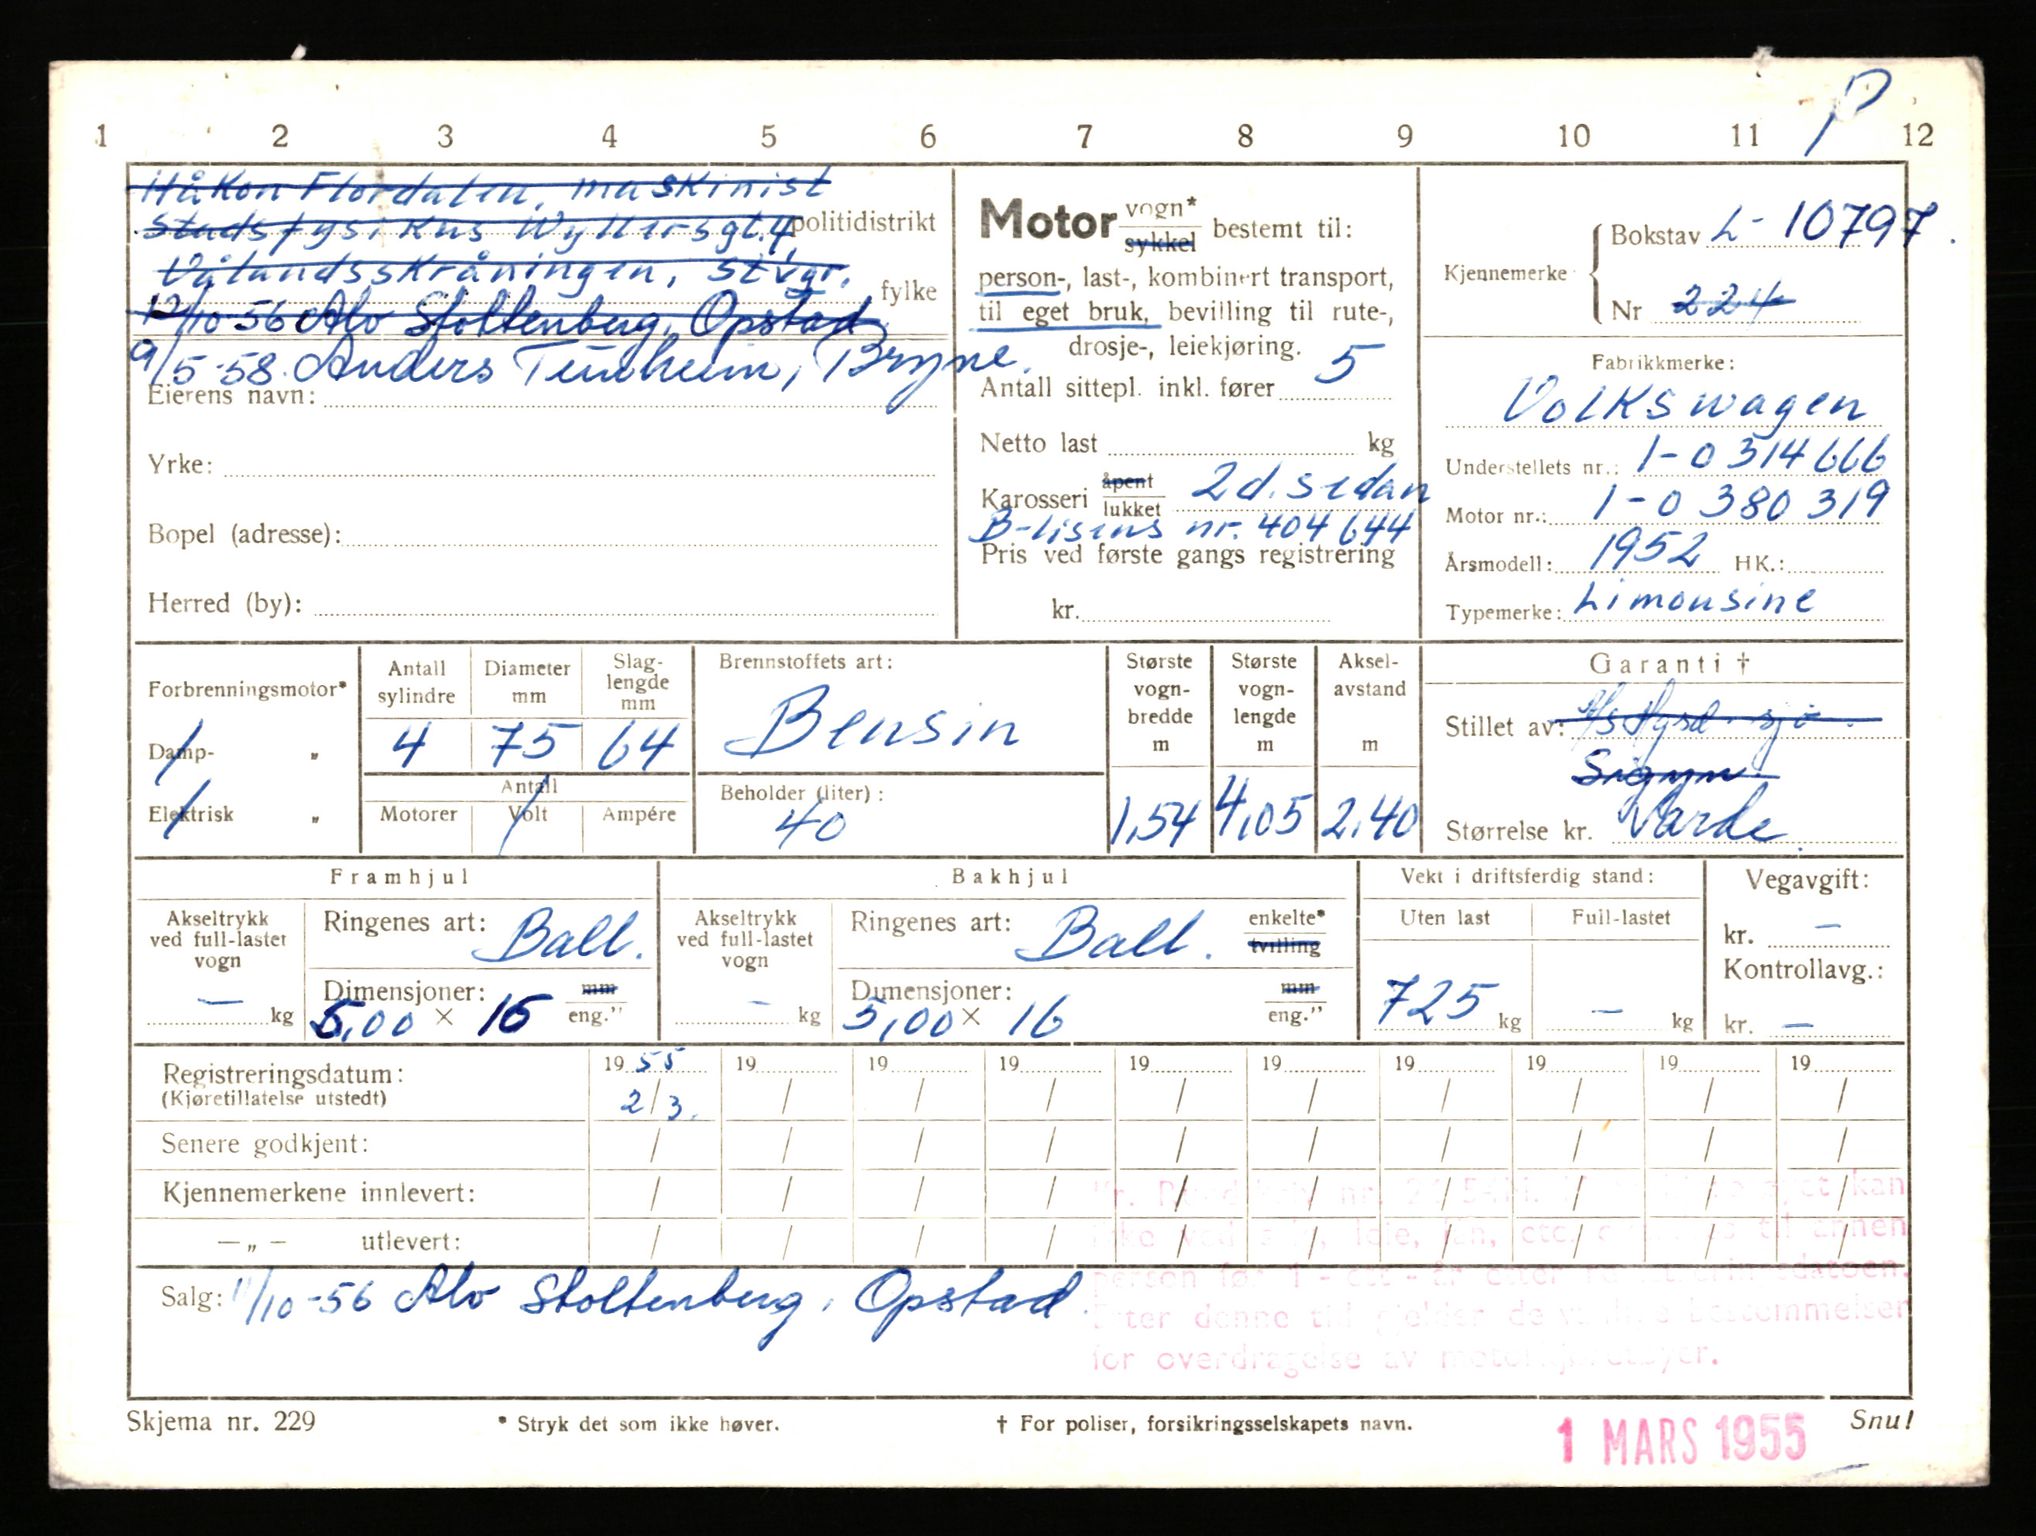 P
1 2 3 4 5 6 7 8 9 10 11 12
Håkon Flordalen, maskinist
Stadsfysikus Wyllersgt. 4, politidistrikt
Vålandsskråningen, Stvgr. fylke
12/10-56 Alv Stoltenberg, Opstad
9/5-58. Anders Tunheim, Bryne.
Eierens navn:
Yrke:
Bopel (adresse):
Herred (by):
Motor vogn* sykkel bestemt til:
person-, last-, kombinert transport,
til eget bruk, bevilling til rute-,
drosje-, leiekjøring.
Antall sittepl. inkl. fører 5
Netto last kg
Karosseri åpent lukket 2d. sedan
B-lisens nr. 404644
Pris ved første gangs registrering
kr.
Kjennemerke
Bokstav L-10797.
Nr 224
Fabrikkmerke:
Volkswagen
Understellets nr.: 1-0314666
Motor nr.: 1-0380319
Årsmodell: 1952 HK.:
Typemerke: Limousine
Forbrenningsmotor*
Damp- "
Elektrisk "
Antall sylindre 4
Diameter mm 75
Slag-lengde mm 64
Antall
Motorer Volt Ampére
Brennstoffets art:
Bensin
Beholder (liter):
40
Største vogn-bredde m 1,54
Største vogn-lengde m 4,05
Aksel-avstand m 2,40
Garanti †
Stillet av:
Sigyn
Størrelse kr. Varde
Framhjul
Akseltrykk ved full-lastet vogn
— kg
Ringenes art: Ball.
Dimensjoner: mm eng."
5,00 × 15
Bakhjul
Akseltrykk ved full-lastet vogn
— kg
Ringenes art: Ball. enkelte* tvilling
Dimensjoner: mm eng."
5,00 × 16
Vekt i driftsferdig stand:
Uten last Full-lastet
725 kg — kg
Vegavgift:
kr. —
Kontrollavg.:
kr. —
Registreringsdatum: 1955 19 19 19 19 19 19 19 19 19
(Kjøretillatelse utstedt) 2/3. / / / / / / / / /
Senere godkjent: / / / / / / / / / /
Kjennemerkene innlevert: / / / / / / / / / /
— „ — utlevert: / / / / / / / / / /
Salg: 11/10-56 Alv Stoltenberg, Opstad
kan
ikke ved leie, lån, etc. til annen
person før 1 - ett - år etter
Etter denne tid gjelder de bestemmelser
for overdragelse av motorkjøretøyer.
Skjema nr. 229
* Stryk det som ikke høver.
† For poliser, forsikringsselskapets navn.
1 MARS 1955
Snu!